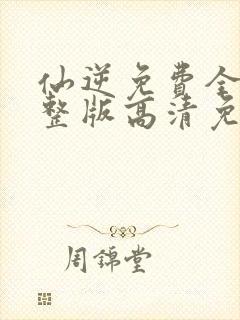 仙逆免費全
整版高清免
周錦堂